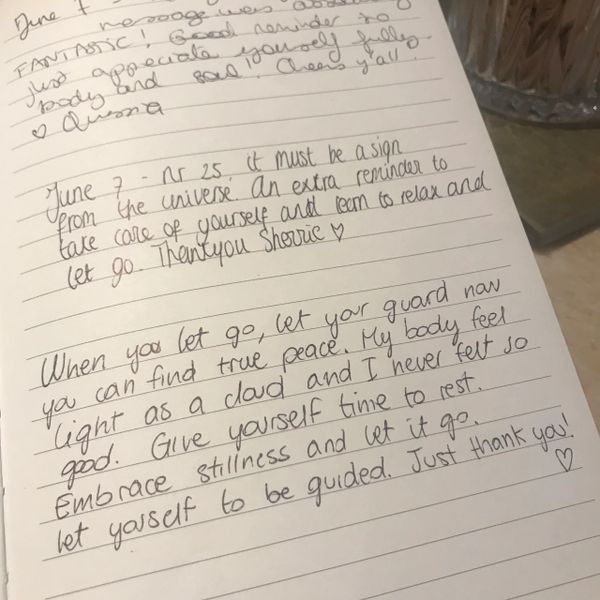 June 7
message was
FANTASTIC! Good reminder to
just appreciate yourself fully
body and soul! Cheers y'all!
♡
June 7 - nr 25, it must be a sign
from the universe. An extra reminder to
take care of yourself and learn to relax and
let go. Thankyou Sherrie ♡
When you let go, let your guard now
you can find true peace. My body feel
light as a cloud and I never felt so
good. Give yourself time to rest.
Embrace stillness and let it go.
Let yourself to be guided. Just thank you!
♡